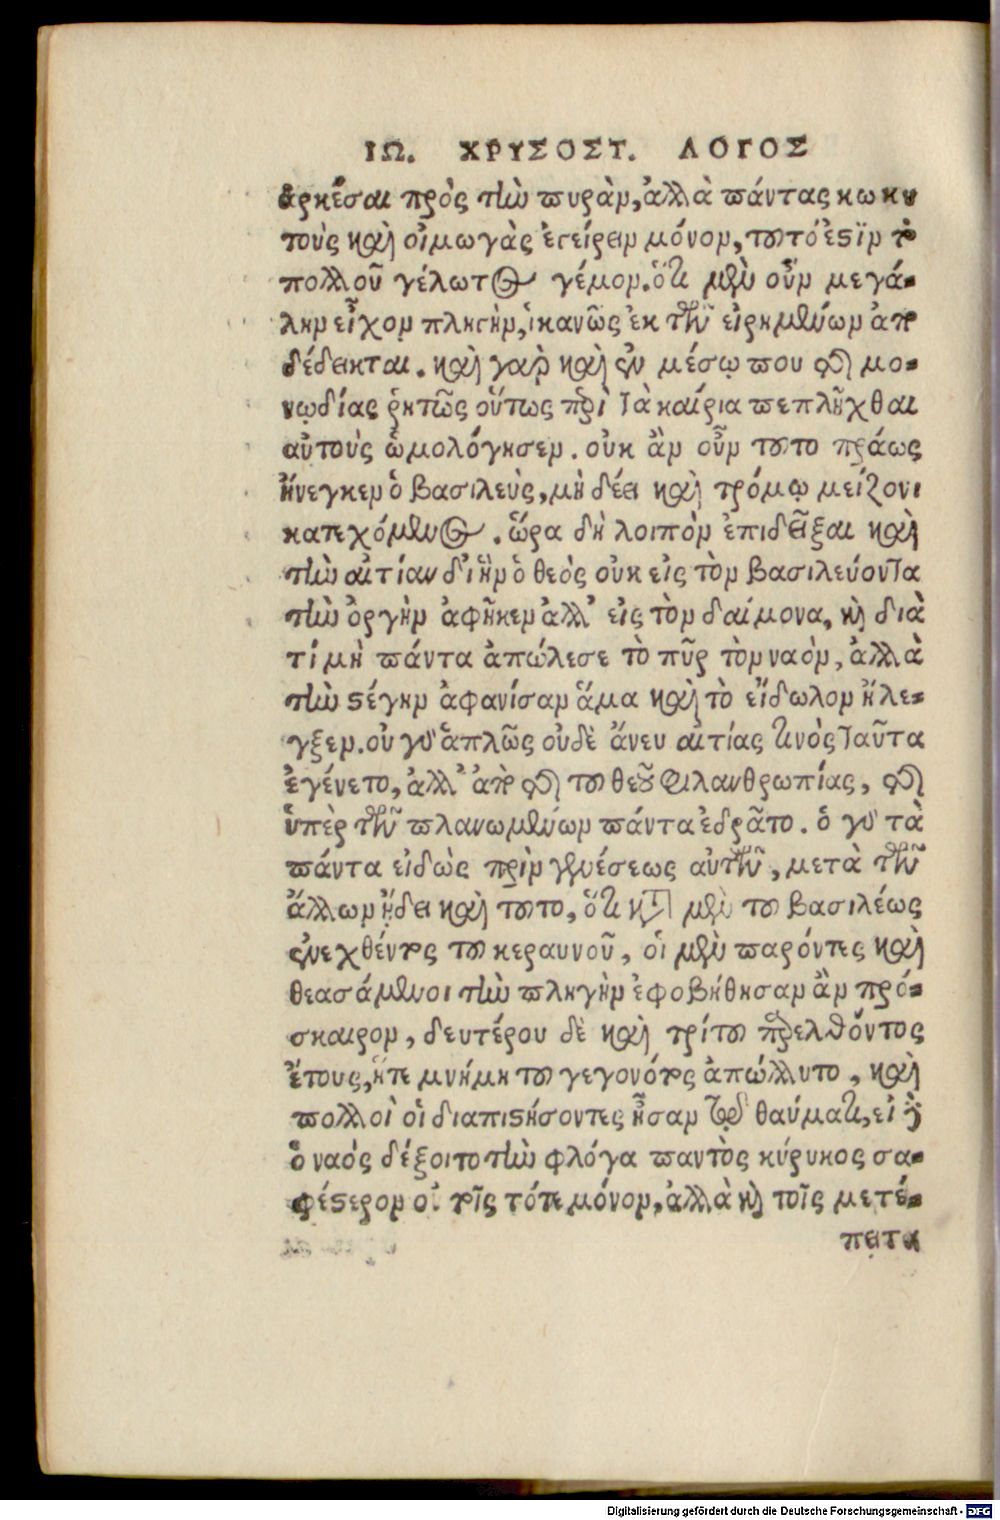 ΙΩ. ΧΡΥΣΟΣΤ. ΛΟΓΟΣ
ἀρκέσαι πρὸς τὴν πυρὰν, ἀλλὰ πάντας κωκυ
τοὺς καὶ οἰμωγὰς ἐγείρειν μόνον, τοῦτό ἐστιν
πολλοῦ γέλωτος γέμον. ὅτι μὲν οὖν μεγά-
λην εἶχον πληγὴν, ἱκανῶς ἐκ τῶν εἰρημένων ἀπο
δέδεικται. καὶ γὰρ καὶ ἐν μέσῳ που τῆς μο-
νῳδίας ῥητῶς οὕτως περὶ τὰ καίρια πεπλῆχθαι
αὐτοὺς ὡμολόγησεν. οὐκ ἂν οὖν τοῦτο πράως
ἤνεγκεν ὁ βασιλεὺς, μὴ δέει καὶ τρόμῳ μείζονι
κατεχόμενος. ὥρα δὴ λοιπὸν ἐπιδεῖξαι καὶ
τὴν αἰτίαν δι' ἣν ὁ θεὸς οὐκ εἰς τὸν βασιλεύοντα
τὴν ὀργὴν ἀφῆκεν ἀλλ' εἰς τὸν δαίμονα, καὶ διὰ
τί μὴ πάντα ἀπώλεσε τὸ πῦρ τὸν ναὸν, ἀλλὰ
τὴν στέγην ἀφανίσαν ἅμα καὶ τὸ εἴδωλον ἤλε-
γξεν. οὐ γὰρ ἁπλῶς οὐδὲ ἄνευ αἰτίας τινὸς ταῦτα
ἐγένετο, ἀλλ' ἀπὸ τῆς τοῦ θεοῦ φιλανθρωπίας, τῆς
ὑπὲρ τῶν πλανωμένων πάντα ἐδρᾶτο. ὁ γὰρ τὰ
πάντα εἰδὼς πρὶν γενέσεως αὐτῶν, μετὰ τῶν
ἄλλων ᾔδει καὶ τοῦτο, ὅτι κατὰ μὲν τοῦ βασιλέως
ἐνεχθέντος τοῦ κεραυνοῦ, οἱ μὲν παρόντες καὶ
θεασάμενοι τὴν πληγὴν ἐφοβήθησαν ἂν πρό-
σκαιρον, δευτέρου δὲ καὶ τρίτου παρελθόντος
ἔτους, ἥτε μνήμη τοῦ γεγονότος ἀπώλλυτο, καὶ
πολλοὶ οἱ διαπιστήσοντες ἦσαν τῷ θαύματι, εἰ δὲ
ὁ ναὸς δέξοιτο τὴν φλόγα παντὸς κήρυκος σα-
φέστερον οὐ τοῖς τότε μόνον, ἀλλὰ καὶ τοῖς μετέ-
πειτα
Digitalisierung gefördert durch die Deutsche Forschungsgemeinschaft - DFG